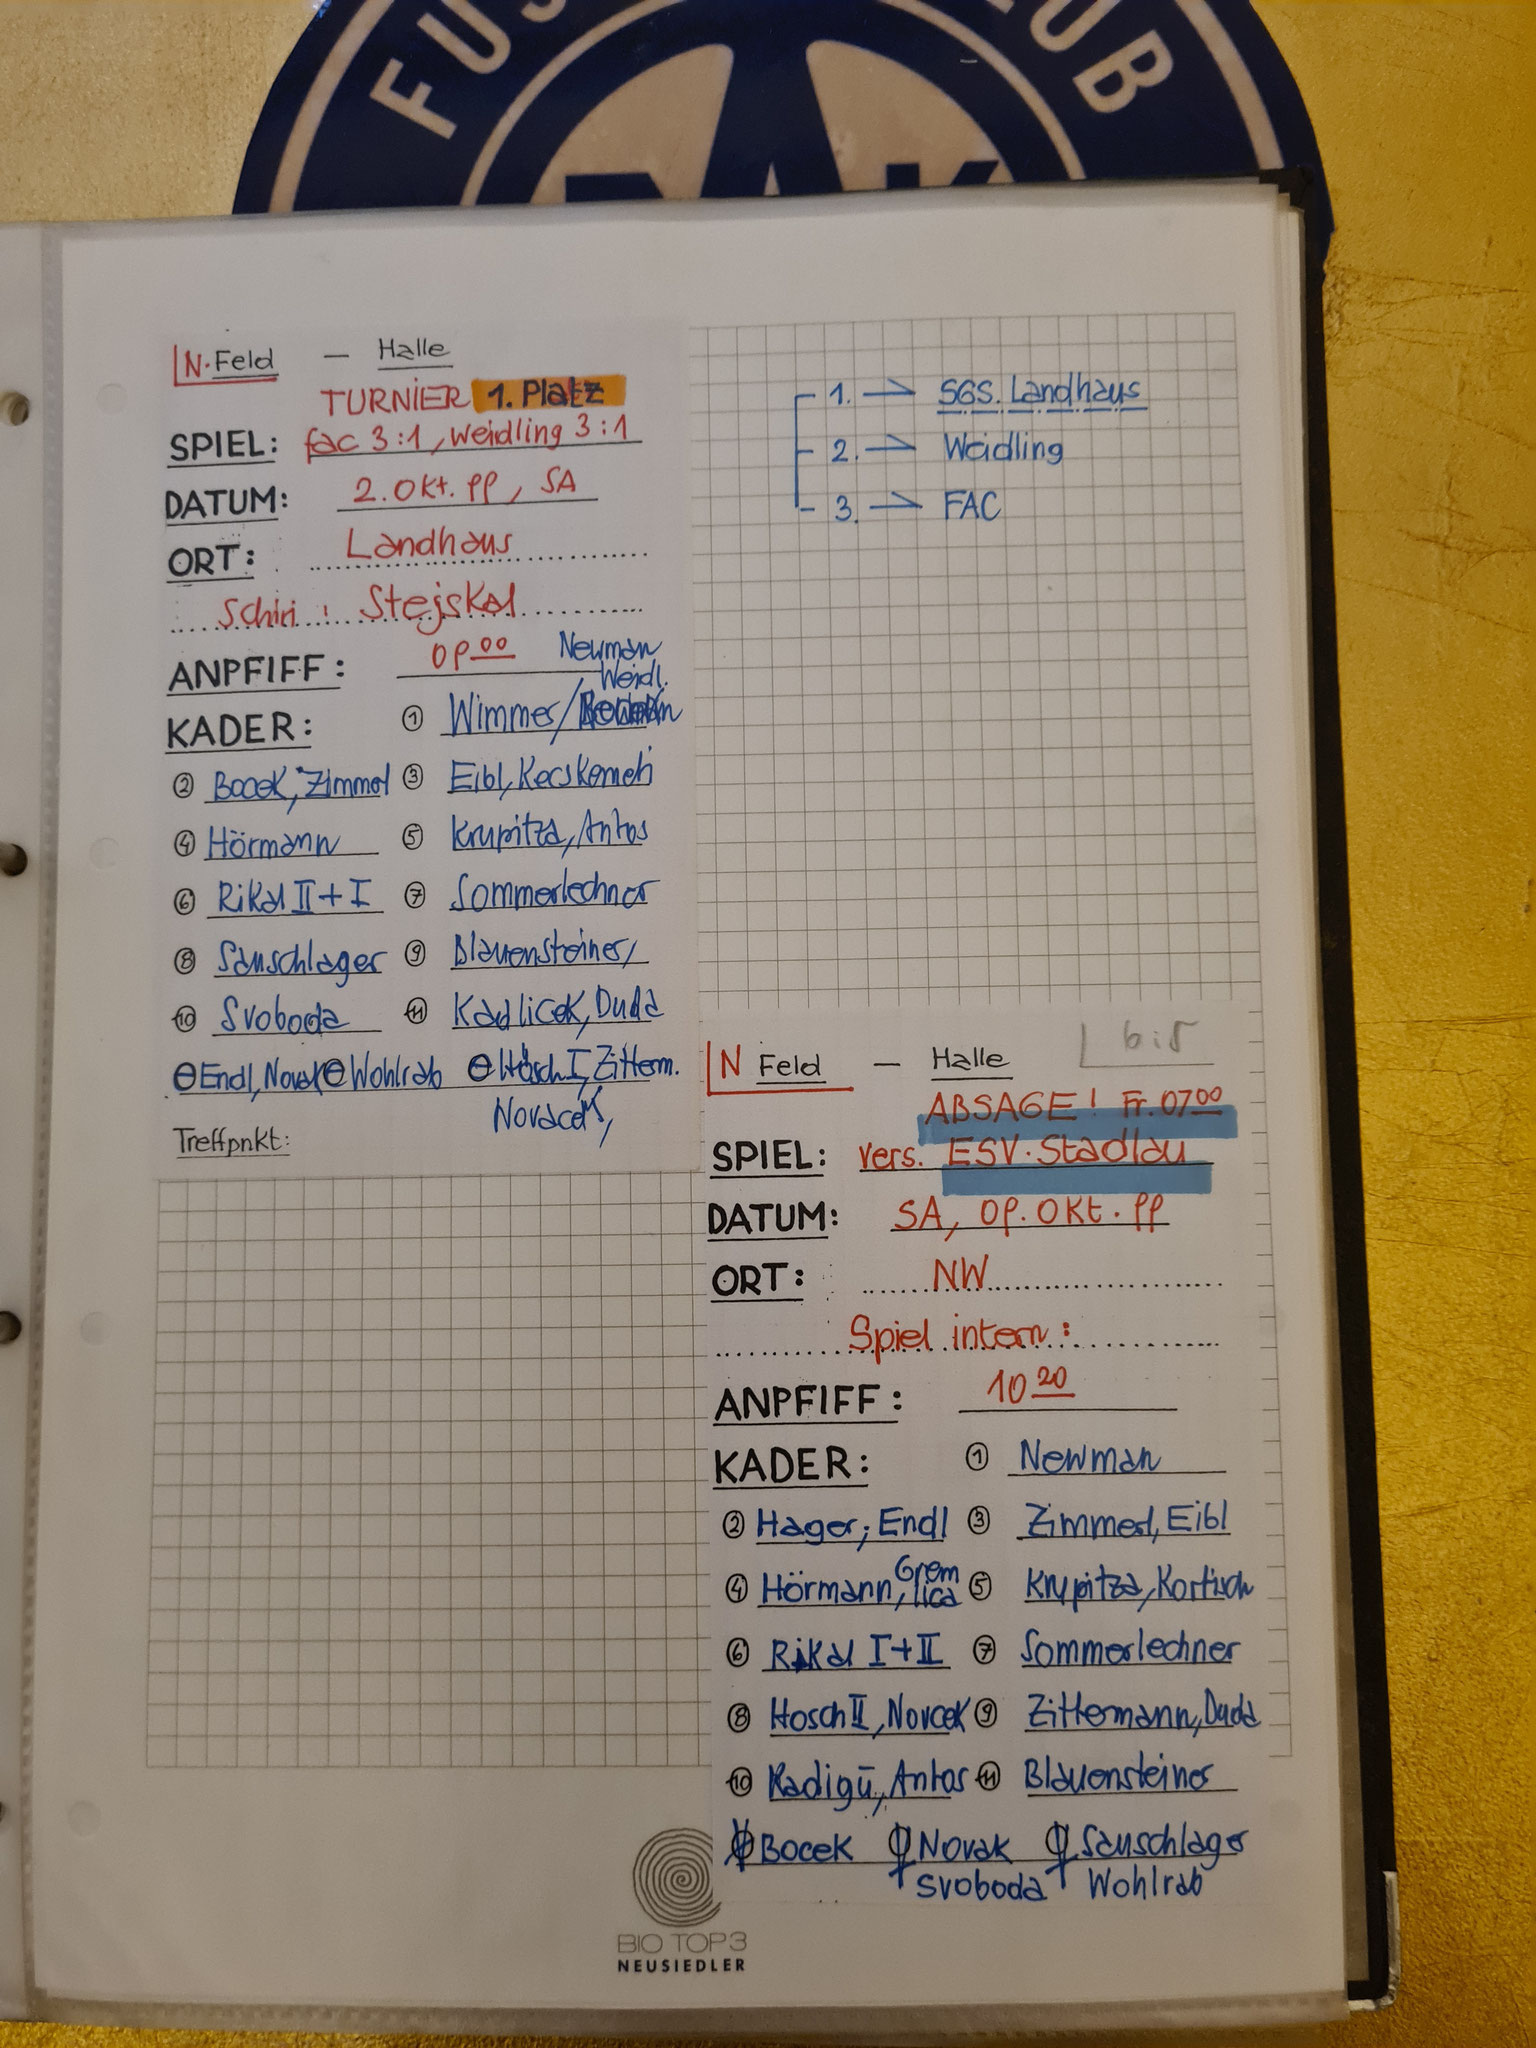 N. Feld — Halle
TURNIER 1. Platz
SPIEL: fac 3:1, Weidling 3:1
DATUM: 2. Okt. 99, SA
ORT: Landhaus
Schiri: Stejskal
ANPFIFF: 09 00 Newman
Weidl.
KADER: 1 Wimmer/
2 Bocek, Zimmel 3 Eibl, Kecskemeti
4 Hörmann 5 Krupitza, Antos
6 Rikal II + I 7 Sommerlechner
8 Sauschlager 9 Blauensteiner/
10 Svoboda 11 Kadlicek, Duda
Endl, Novak Wohlrab Hösch I, Zitterm.
Novacek,
Treffpnkt:
1. → SGS. Landhaus
2. → Weidling
3. → FAC
N Feld — Halle 6:5
ABSAGE! Fr. 07 00
SPIEL: vers. ESV. Stadlau
DATUM: SA, 09. Okt. 99
ORT: NW
Spiel intern:
ANPFIFF: 10 20
KADER: 1 Newman
2 Hager, Endl 3 Zimmel, Eibl
4 Hörmann, Gremlica 5 Krupitza, Kortisch
6 Rikal I + II 7 Sommerlechner
8 Hosch II, Novcek 9 Zittermann, Duda
10 Kadigū, Antos 11 Blauensteiner
Bocek Novak Sauschlager
Svoboda Wohlrab
BIO TOP3
NEUSIEDLER